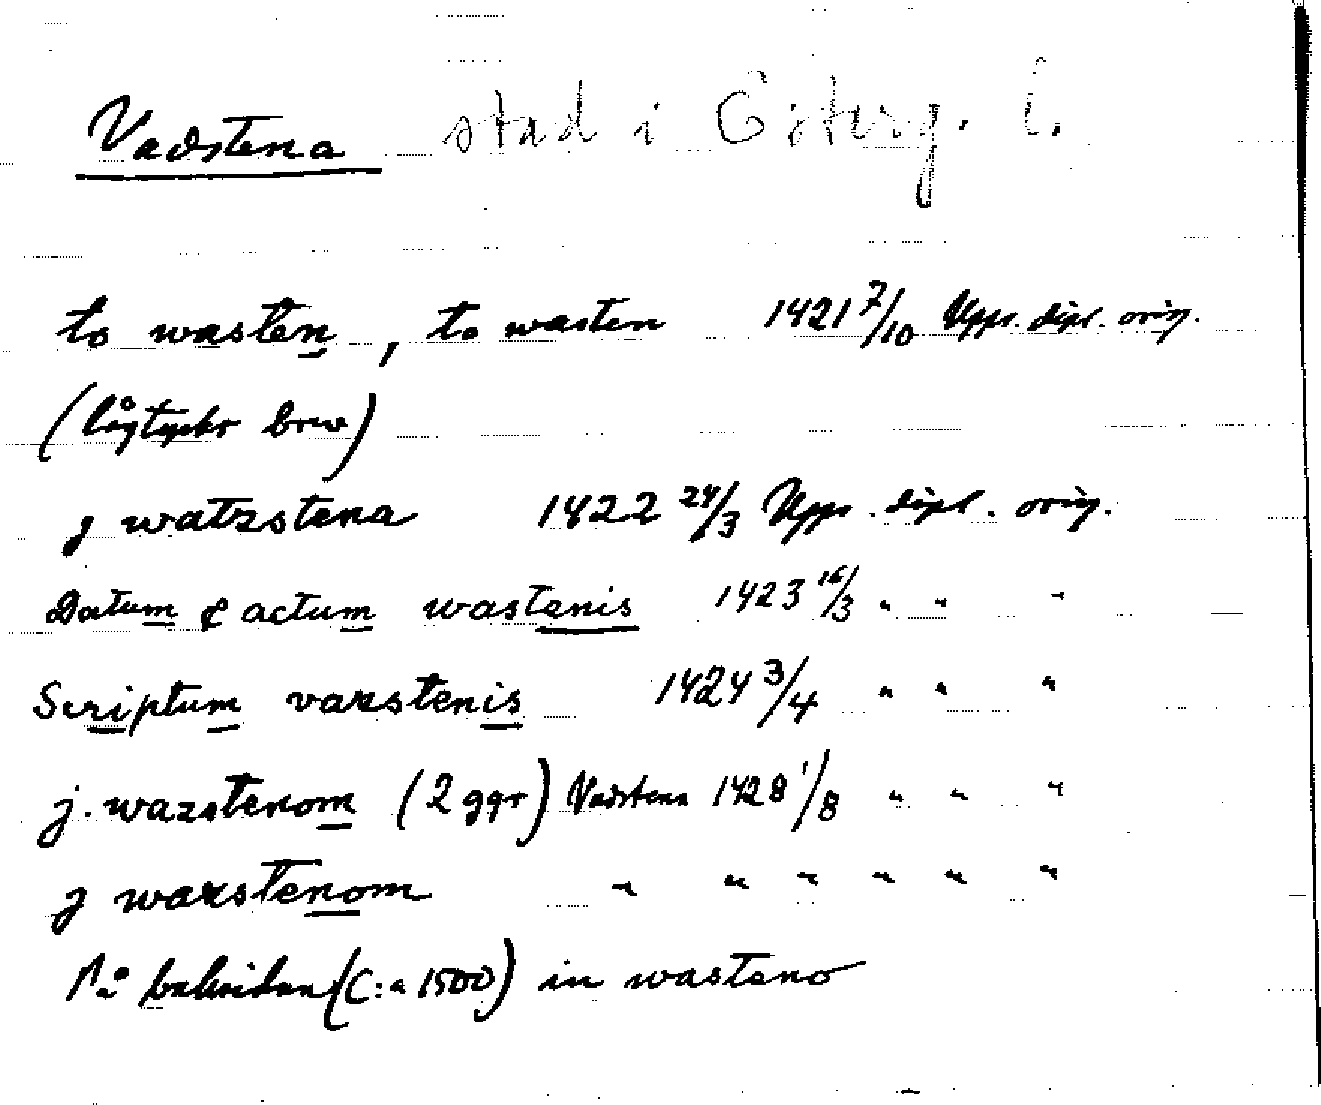 Vadstena stad i Österg. l.
to wasten, to wasten 1421 7/10 Upps. dipl. orig.
(lågtyskt brev)
j watzstena 1422 24/3 Upps. dipl. orig.
Datum & actum wastenis 1423 16/3 " " "
Scriptum vazstenis 1424 3/4 " " "
j. wazstenom (2 ggr) Vadstena 1428 1/8 " " "
j wazstenom " " " " " "
På baksidan (C:a 1500) in wasteno